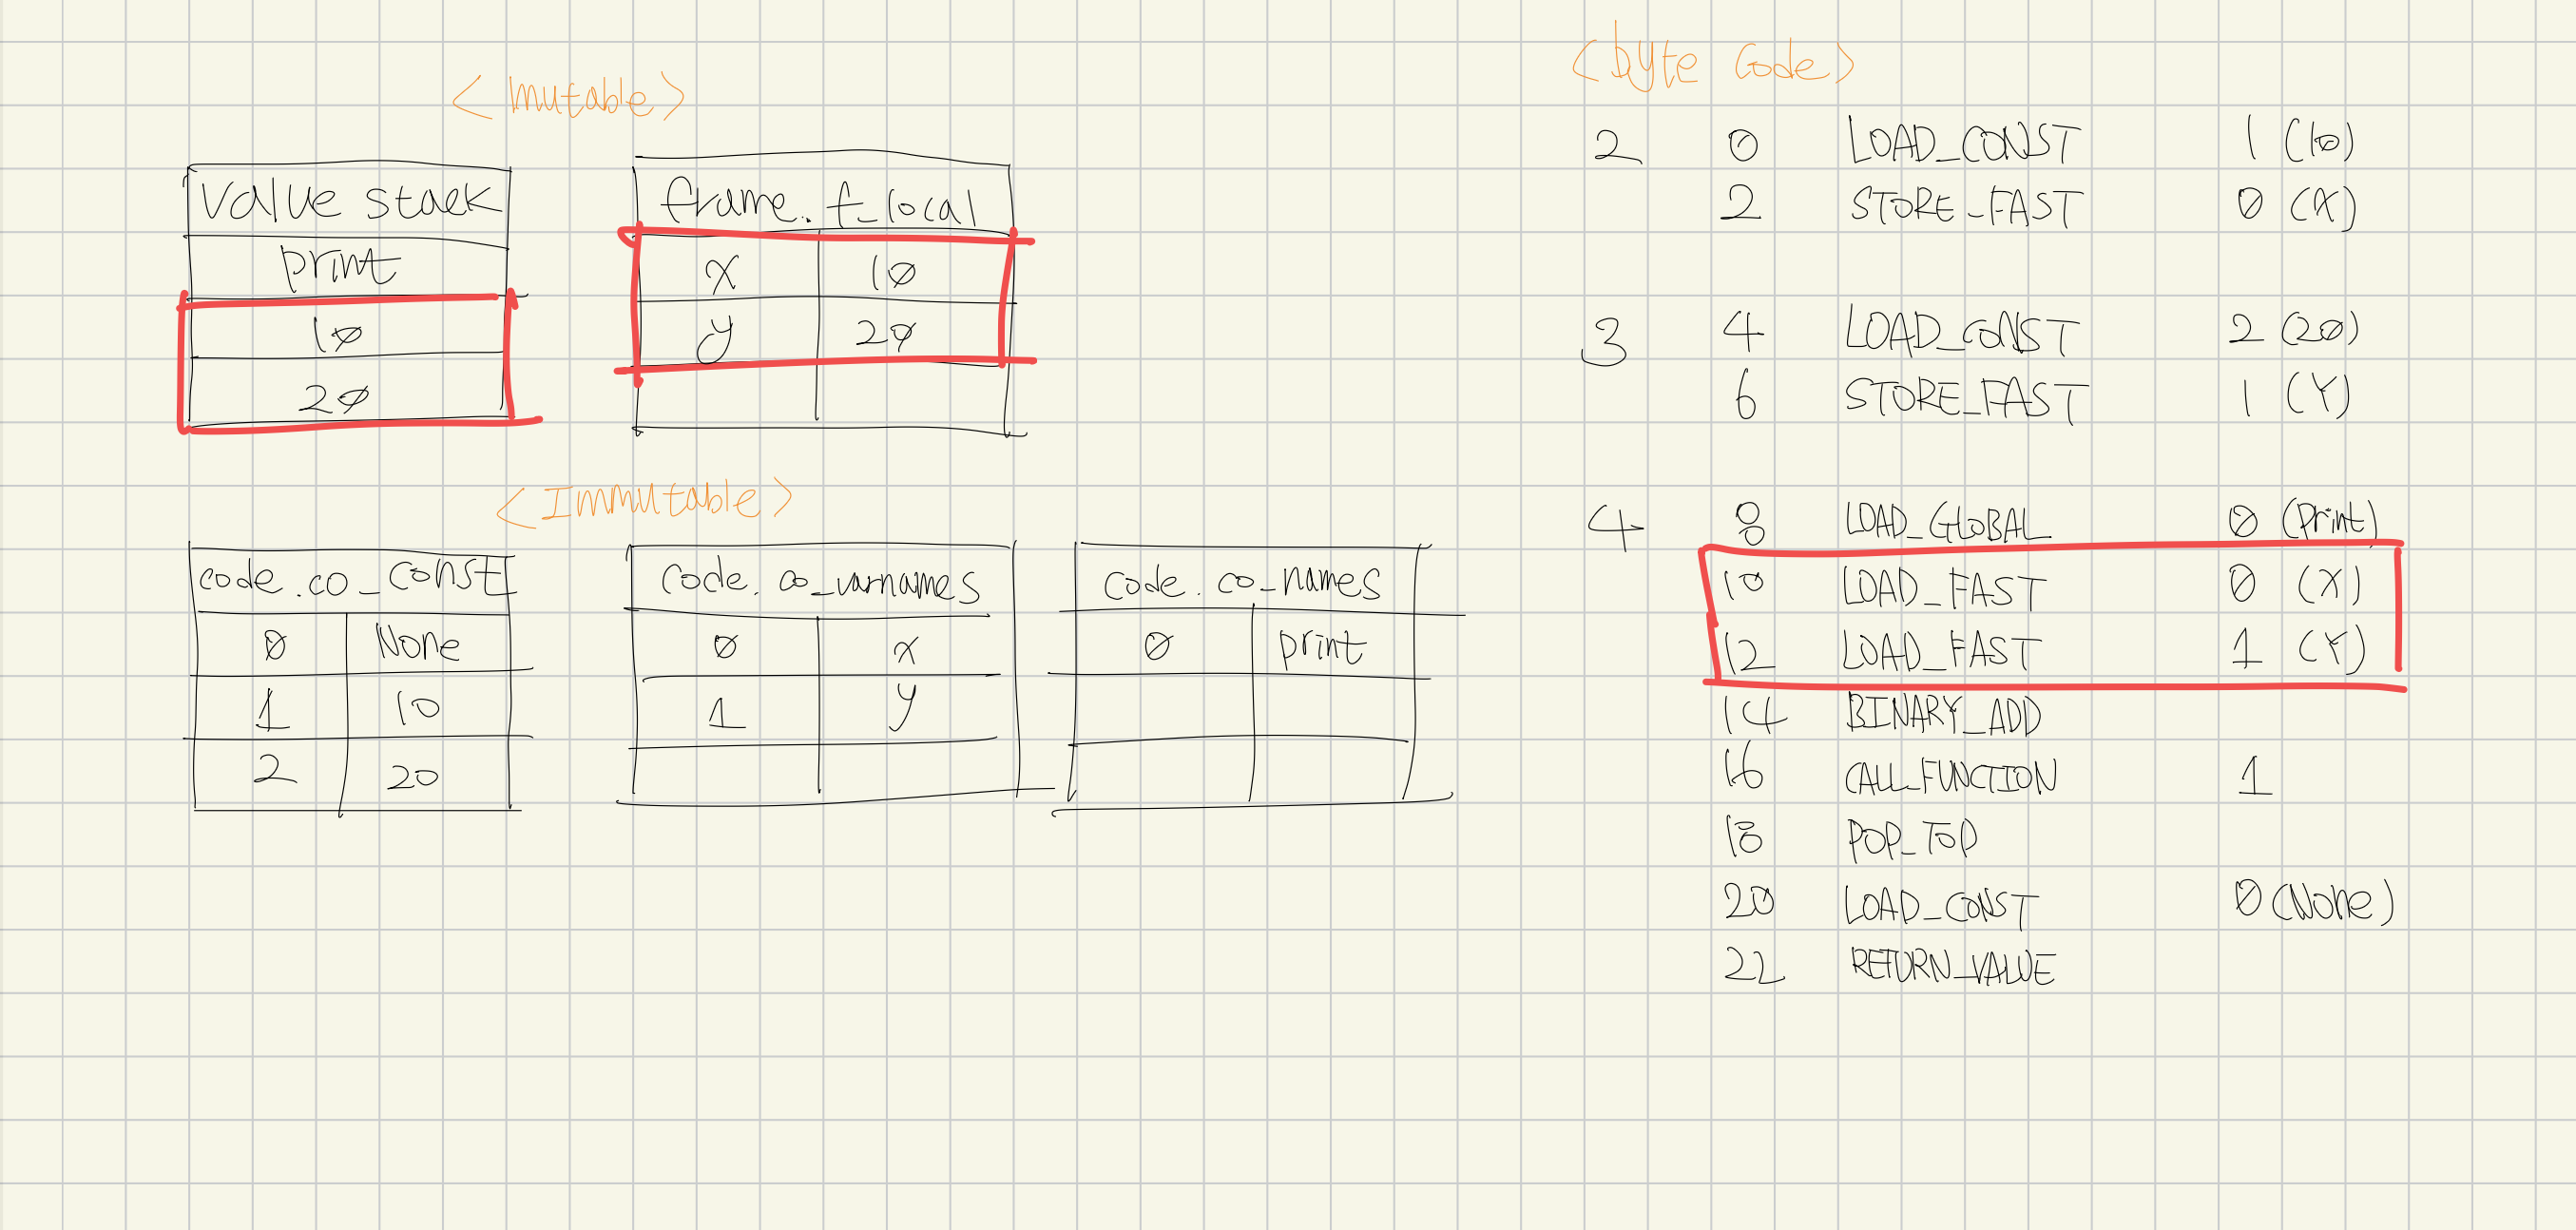 <mutable>
value stack
print
10
20
frame.f_local
x 10
y 20
<Immutable>
code.co_const
0 None
1 10
2 20
code.co_varnames
0 x
1 y
code.co_names
0 print
<byte code>
2 0 LOAD_CONST 1 (10)
2 STORE_FAST 0 (X)
3 4 LOAD_CONST 2 (20)
6 STORE_FAST 1 (Y)
4 8 LOAD_GLOBAL 0 (Print)
10 LOAD_FAST 0 (X)
12 LOAD_FAST 1 (Y)
14 BINARY_ADD
16 CALL_FUNCTION 1
18 POP_TOP
20 LOAD_CONST 0 (None)
22 RETURN_VALUE